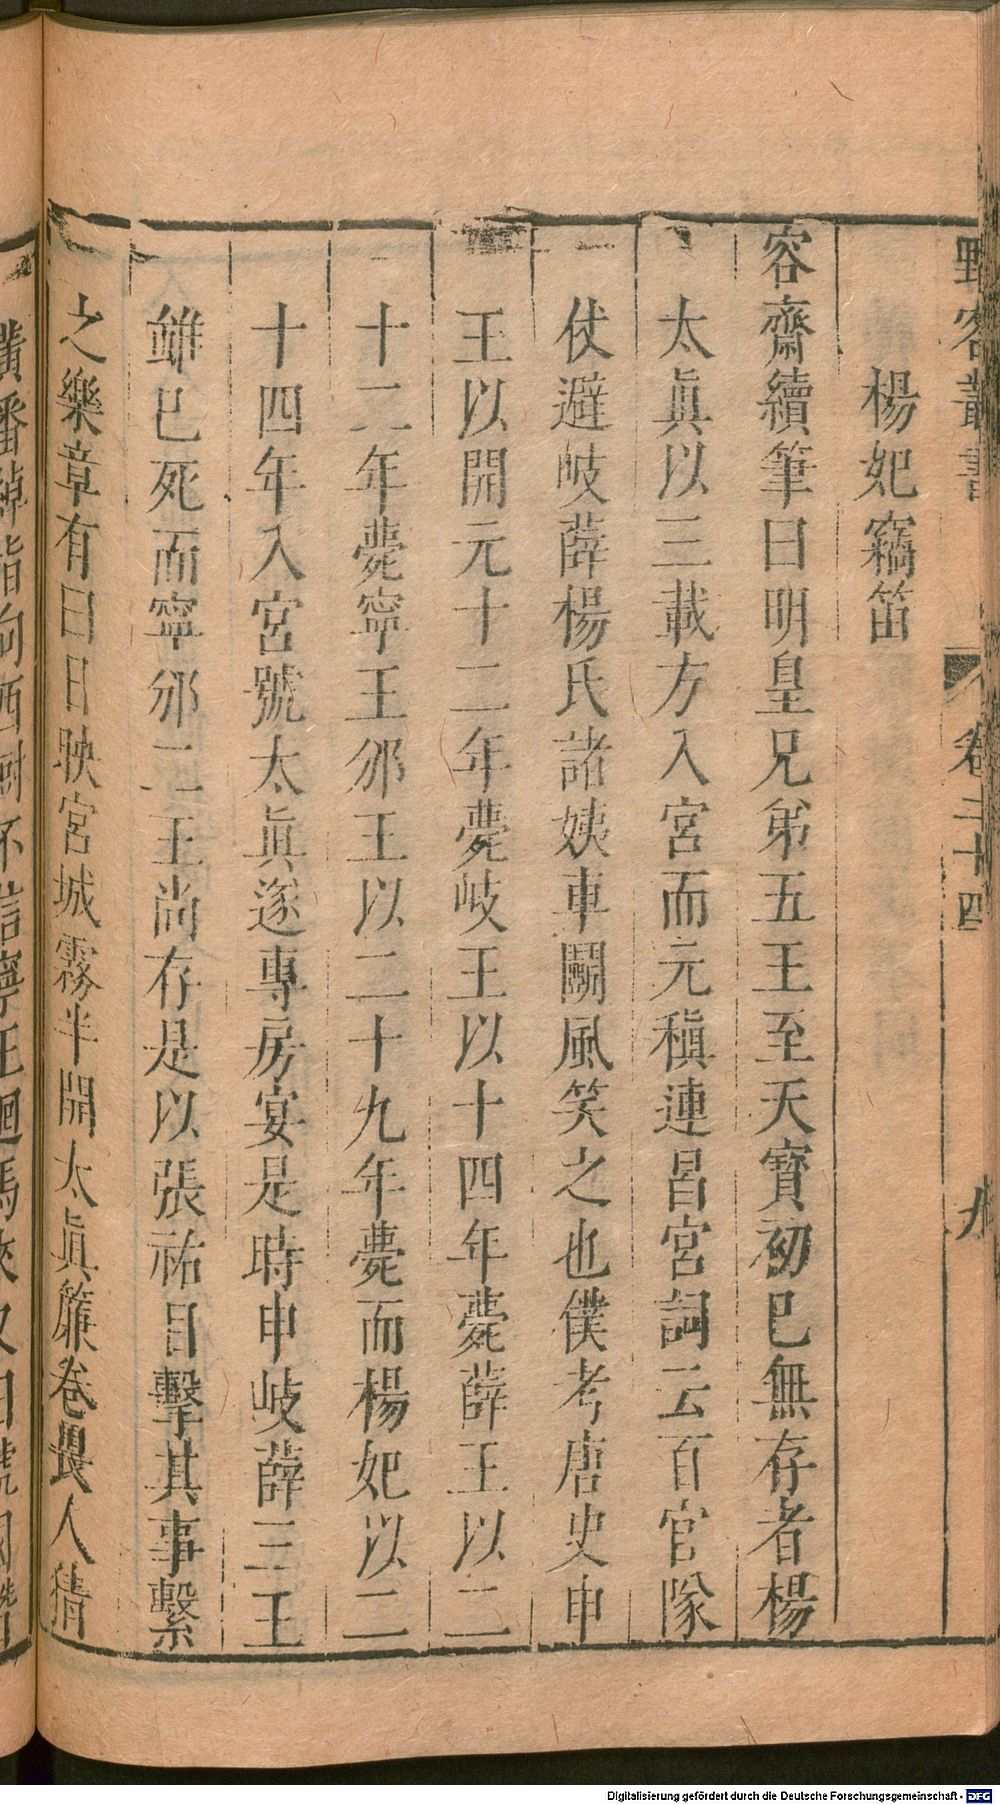 野客叢書 卷二十四 九
楊妃竊笛
容齋續筆曰明皇兄弟五王至天寳初已無存者楊
太眞以三載方入宮而元稹連昌宮詞云百官隊
仗避岐薛楊氏諸姨車鬭風笑之也僕考唐史申
王以開元十二年薨岐王以十四年薨薛王以二
十二年薨寧王邠王以二十九年薨而楊妃以二
十四年入宮號太眞遂專房宴是時申岐薛三王
雖已死而寧邠二王尚存是以張祐目擊其事繫
之樂章有曰日映宮城霧半開太眞簾卷畏人猜
黃番綽指向西樹不信寧王廻馬來又曰虢國潛
Digitalisierung gefördert durch die Deutsche Forschungsgemeinschaft - DFG